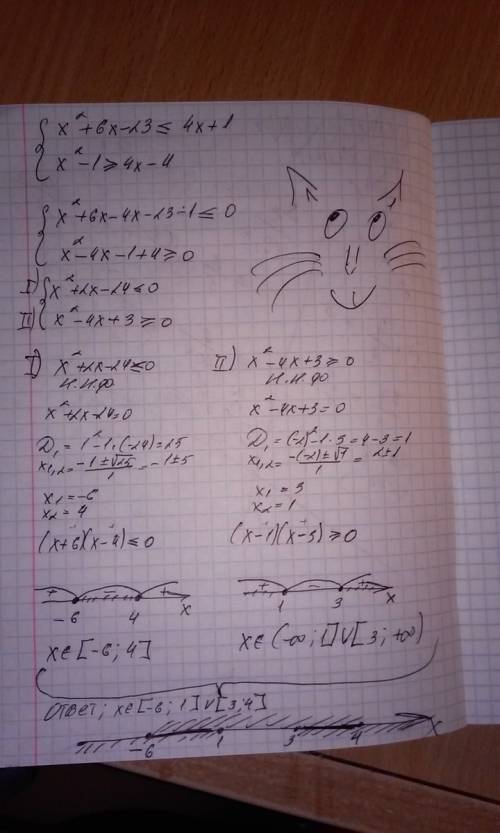 x²+6x-23≤4x+1
x²-1≥4x-4
x²+6x-4x-23-1≤0
x²-4x-1+4≥0
I) x²+2x-24≤0
II) x²-4x+3≥0
I) x²+2x-24≤0
Н.Н.ФО
x²+2x-24=0
D₁=1²-1·(-24)=25
x₁,₂=(-1±√25)/1=-1±5
x₁=-6
x₂=4
(x+6)(x-4)≤0
+ - +
-6 4 x
x∈[-6;4]
II) x²-4x+3≥0
Н.Н.ФО
x²-4x+3=0
D₁=(-2)²-1·3=4-3=1
x₁,₂=(-(-2)±√1)/1=2±1
x₁=3
x₂=1
(x-1)(x-3)≥0
+ - +
1 3 x
x∈(-∞;1]∪[3;+∞)
Ответ; x∈[-6;1]∪[3;4]
-6 1 3 4 x